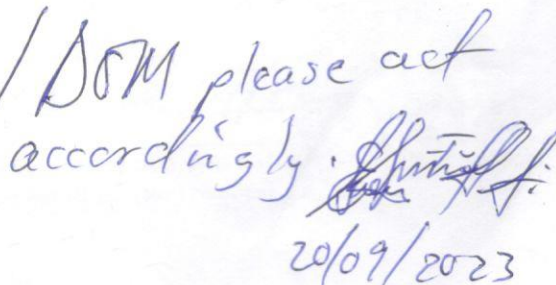 /DOM please act
accordingly.
20/09/2023